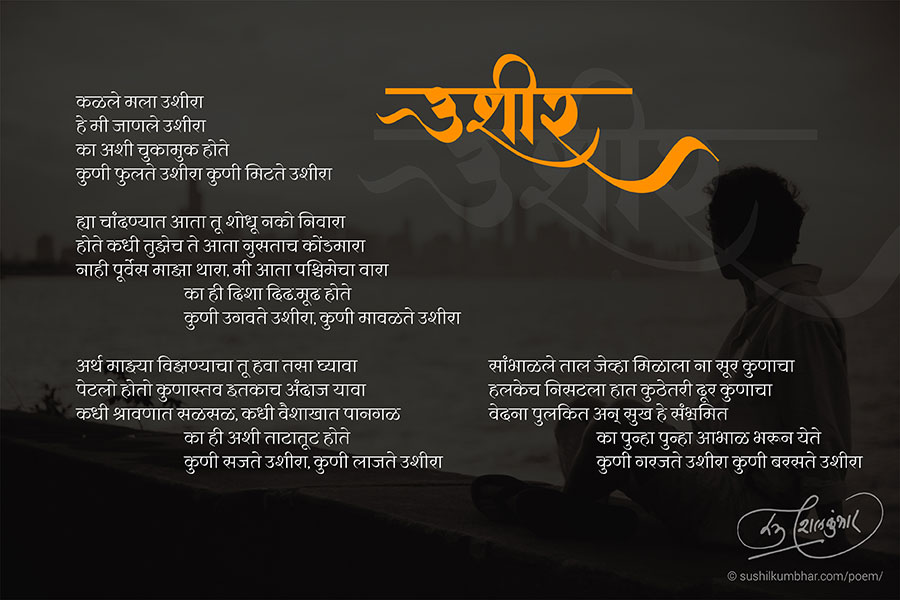 उशीर
कळले मला उशीरा
हे मी जाणले उशीरा
का अशी चुकामुक होते
कुणी फुलते उशीरा कुणी मिटते उशीरा
ह्या चाँदण्यात आता तू शोधू नको निवारा
होते कधी तुझेच ते आता नुसताच कोंडमारा
नाही पूर्वेस माझा थारा, मी आता पश्चिमेचा वारा
का ही दिशा दिढ.मूढ होते
कुणी उगवते उशीरा, कुणी मावळते उशीरा
अर्थ माझ्या विझण्याचा तू हवा तसा घ्यावा
पेटलो होतो कुणास्तव इतकाच अंदाज यावा
कधी श्रावणात सळसळ, कधी वैशाखात पानगळ
का ही अशी ताटातूट होते
कुणी सजते उशीरा, कुणी लाजते उशीरा
साँभाळले ताल जेव्हा मिळाला ना सूर कुणाचा
हलकेच निसटला हात कुठेतरी दूर कुणाचा
वेदना पुलकित अन् सुख हे सँभ्रमित
का पुन्हा पुन्हा आभाळ भरून येते
कुणी गरजते उशीरा कुणी बरसते उशीरा
© sushilkumbhar.com/poem/